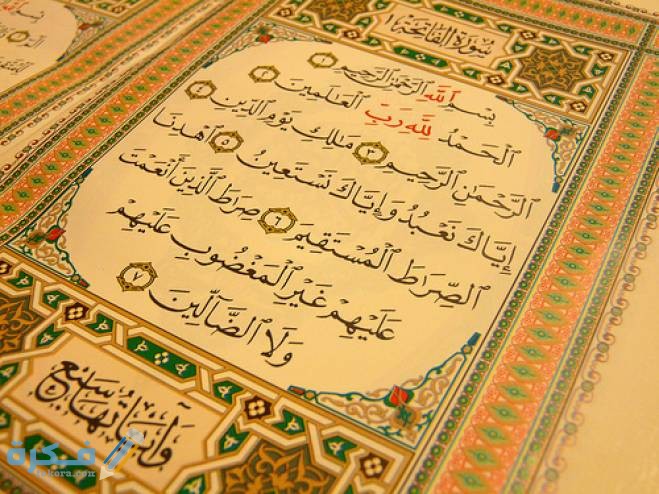 سُورَةُ الْفَاتِحَةِ ١
بِسْمِ ٱللَّهِ ٱلرَّحْمَٰنِ ٱلرَّحِيمِ ١
ٱلْحَمْدُ لِلَّهِ رَبِّ ٱلْعَالَمِينَ ٢
ٱلرَّحْمَٰنِ ٱلرَّحِيمِ ٣ مَلِكِ يَوْمِ ٱلدِّينِ ٤
إِيَّاكَ نَعْبُدُ وَإِيَّاكَ نَسْتَعِينُ ٥ ٱهْدِنَا
ٱلصِّرَاطَ ٱلْمُسْتَقِيمَ ٦ صِرَاطَ ٱلَّذِينَ أَنْعَمْتَ
عَلَيْهِمْ غَيْرِ ٱلْمَغْضُوبِ عَلَيْهِمْ
وَلَا ٱلضَّآلِّينَ ٧
وَآيَاتُهَا سَبْعٌ
فكرة
fekera.com